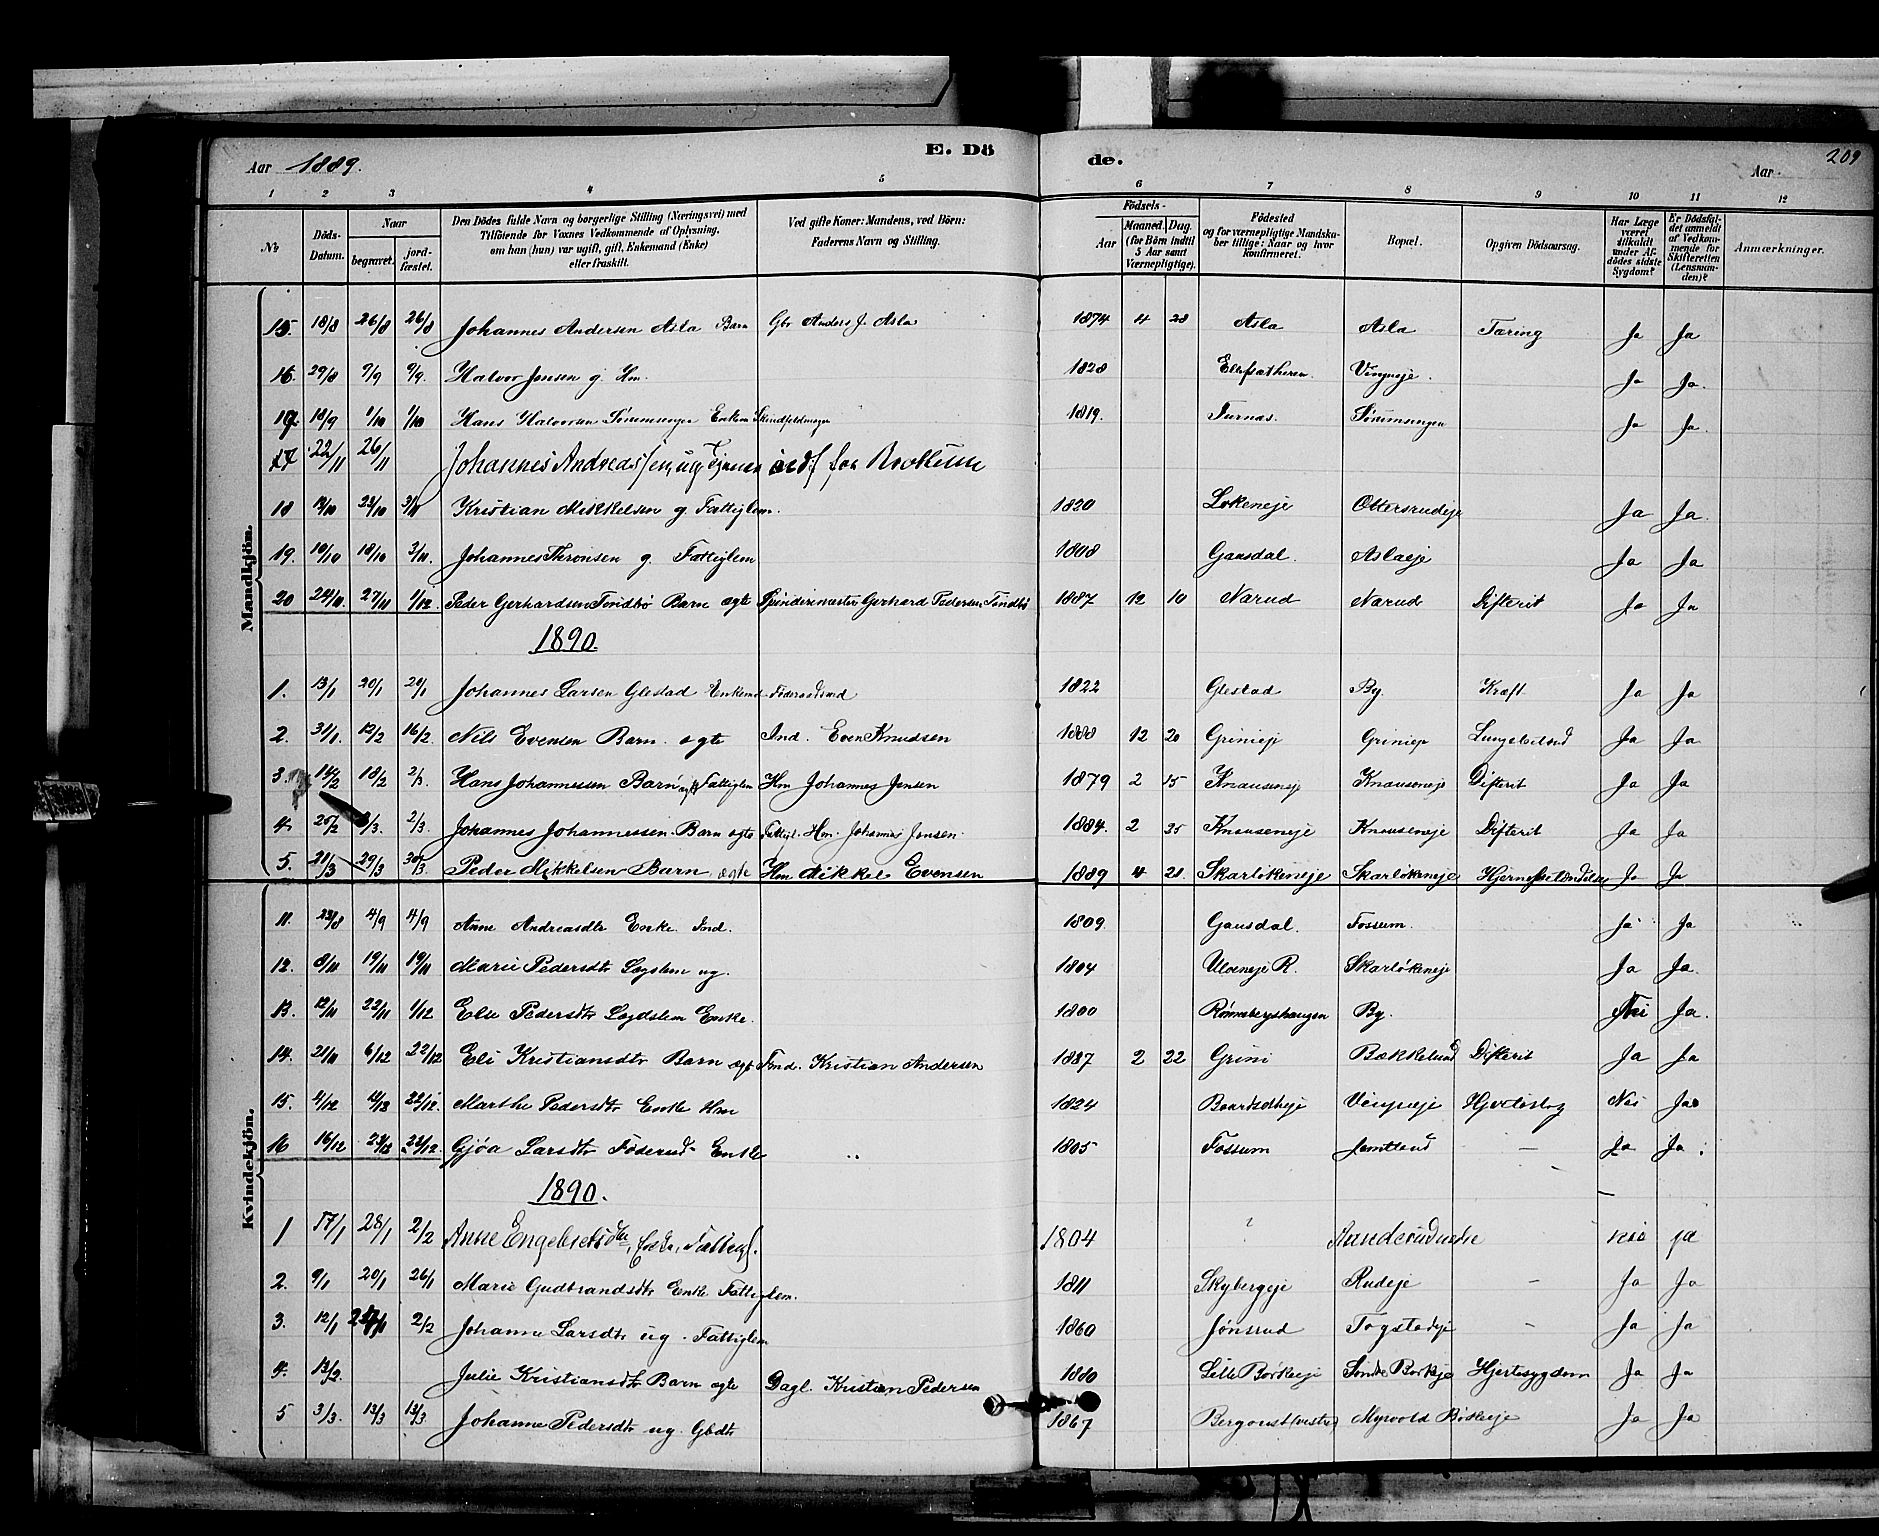 Aar 1889. E. Dö de. Aar 209
1 2 3 4 5 6 7 8 9 10 11 12
No Döds-Datum. Naar begravet. jordfæstet. Den Dödes fulde Navn og borgerlige Stilling (Næringsvei) med Tilföiende for Voxnes Vedkommende af Oplysning, om han (hun) var ugift, gift, Enkemand (Enke) eller fraskilt. Ved gifte Koner: Mandens, ved Börn: Faderens Navn og Stilling. Födsels- Aar Maaned. Dag. (for Börn indtil 5 Aar samt Værnepligtige). Födested og for værnepligtige Mandskaber tillige: Naar og hvor konfirmeret. Bopæl. Opgiven Dödsaarsag. Har Læge været tilkaldt under Afdödes sidste Sygdom? Er Dödsfaldet anmeldt af Vedkommende for Skifteretten (Lensmanden)? Anmærkninger.
Mandkjön.
15. 18/8 26/8 26/8 Johannes Andersen Asla Barn Gbr Anders J. Asla 1874 4 28 Asla Asla Tæring Ja Ja
16. 29/8 9/9 9/9. Halvor Jensen g. Hm. 1828 Vingneje. Ja Ja.
17 18/9 1/10 1/10 Hans Halvorsen Sørumsengen Enkem 1819. Furnæs. Sørumsengen Ja Ja.
17 22/11 26/11 Johannes Andreassen, ug
18 23/10 Kristian Mikkelsen g Fattiglem. 1820 Løkeneje Ottersrudeje Ja Ja.
19. 10/10 18/10 3/11. Johannes Thronsen g. Fattiglem 1808 Gausdal. Aslaeje Ja Ja
20 24/11. 27/11 1/12. Peder Gerhardsen Tondbø Barn ægte Spinderimester Gerhard Pedersen Tondbø 1887 12 10 Narud Narud Difterit Ja Ja
1890.
1. 13/1 20/1 20/1 Johannes Larsen Glestad Enkemd Føderaadsmd 1822 Glestad By. Kræft Ja Ja
2. 31/1. 12/2 16/2. Nils Evensen Barn. ægte Ind. Even Knudsen 1888 12 20 Grinieje Grinieje Lungebetænd Ja Ja
3. 14/2 18/2 2/3. Hans Johannessen Barn ægte Fattiglem Hm Johannes Jensen 1879 2 15 Knauseneje Knauseneje Difterit Ja Ja
4. 25/2 /3. 2/3. Johannes Johannessen. Barn ægte Fattigl. Hm. Johannes Jensen. 1884. 2 25 Knauseneje Knauseneje Difterit Ja Ja
5. 21/3 29/3 30/3. Peder Mikkelsen Barn ægte Hm Mikkel Evensen 1889 4 21. Skarløkeneje Skarløkeneje Hjernebetændelse Ja Ja
Kvindekjön.
11. 23/8 4/9 4/9 Anne Andreasdtr Enke. Ind. 1809. Gausdal. Fossum. Ja Ja
12. 8/11 19/11 19/11 Marie Pedersdtr Lægslem ug. 1804 Ulveneje R. Skarløkeneje Ja Ja.
13. 12/11 22/11 1/12 Else Pedersdtr Lægdslem Enke. 1800 Rønnebergshaugen By. Nei Ja.
14. 21/11 6/12 22/12 Eli Kristiansdtr Barn ægte Ind. Kristian Andersen 1887 2 22 Grini Bækkelund Difterit Ja Ja
15. 4/12 22/12. Marthe Pedersdtr Enke Hm 1824 Vingneje Hjerteslag Nei Ja
16 16/12 22/12. Gjøa Larsdtr Føderaad- Enke 1805 Fossum Jemtland — Ja Ja.
1890.
1 17/1 28/1 2/2 Anne Engebretsdtr, Enke, Fattigl. ? 1804 nei ja
2. 9/1 20/1 26/1 Marie Gudbrandsdtr Enke Fattiglem. 1811 Skybergeje Rudeje — Ja Ja
3. 12/1 2/2 Johanne Larsdtr ug. Fattiglem 1860 Jønsrud Togstadeje — Ja Ja
4. 13/2. Julie Kristiansdtr Barn ægte Dagl. Kristian Pedersen 1880 Lille Børkeeje Hjertesygdom Ja Ja
5 3/3. 13/3 13/3 Johanne Pedersdtr ug. Gbdtr 1867 Bergoust (vestre) Myrvold Ja Ja